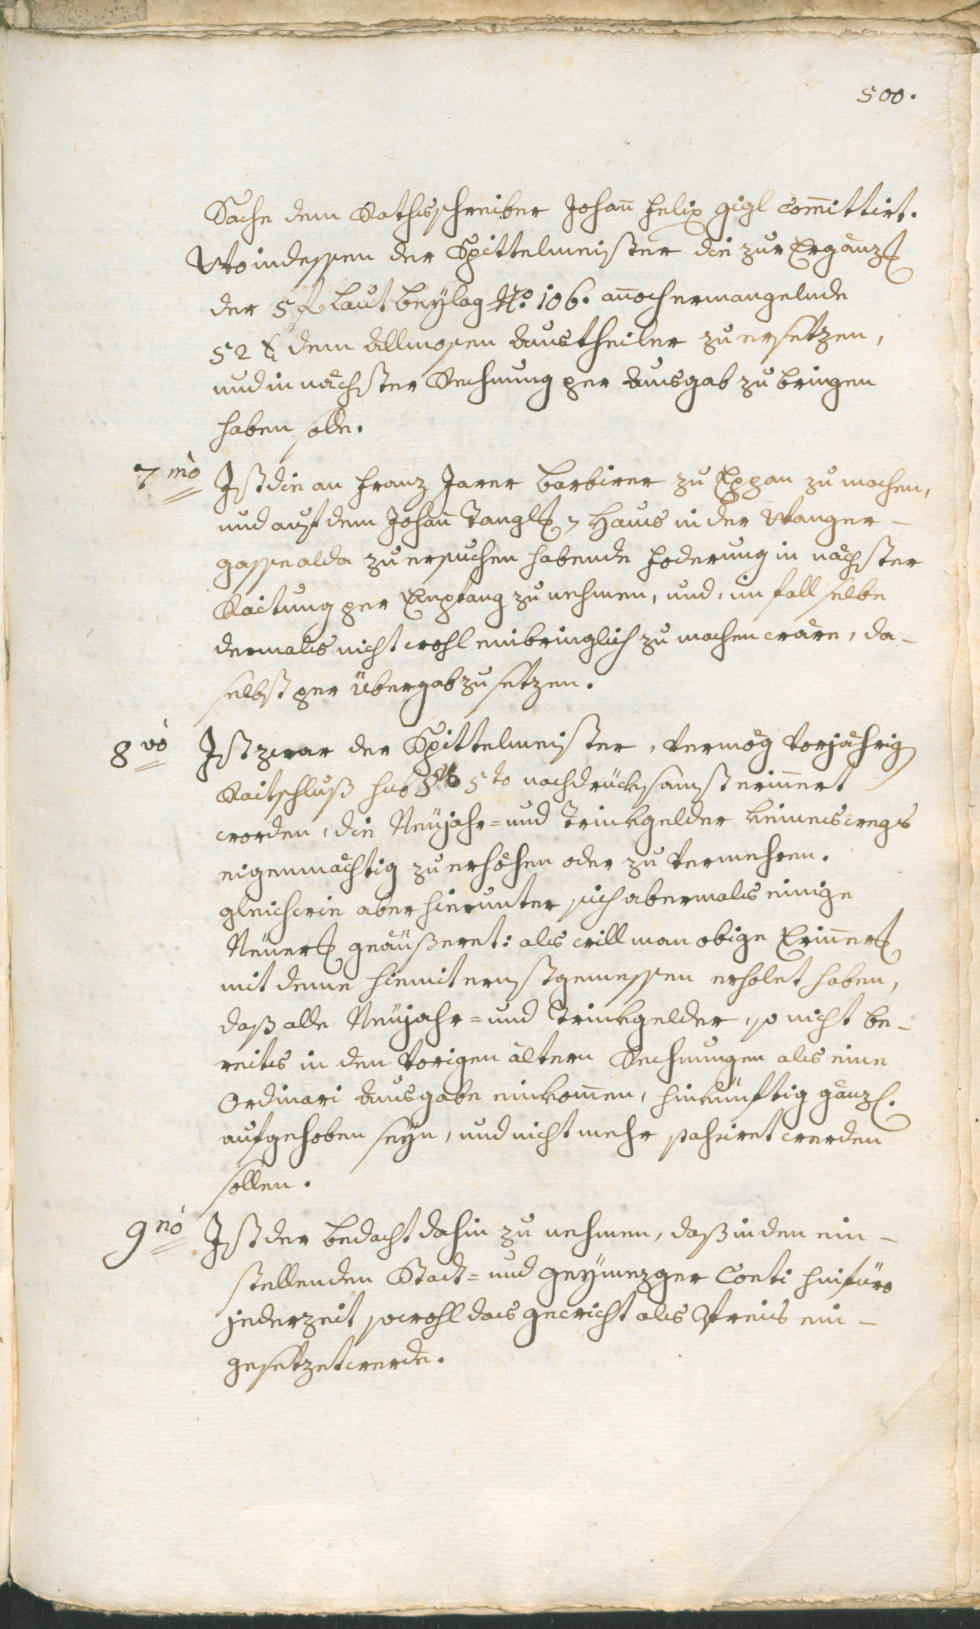 500.
Sache dem Rathsschreiber Johann Felix Gigl committirt.
Wo indessen der Spittelmeister die zur Ergänzg
der 5 f laut Beylag No: 106. annoch ermangelnde
52 x dem Allmosen Austheiler zu ersetzen,
und in nächster Rechnung per Ausgab zu bringen
haben solle.
7mo Ist die an Franz Jarer Barbirer zu Eppan zu machen,
und auf dem Johann Tangl Haus in der Wanger-
gasse alda zu ersuchen habende Foderung in nächster
Raitung per Empfang zu nehmen, und, im fall selbe
dermals nicht wohl einbringlich zu machen wäre, da-
selbst per Übergab zu setzen.
8vo Ist zwar der Spittelmeister, vermög vorjährig
Raitschluß sub § 5to nachdrücksamst erinnert
worden, die Neujahr= und Trinkgelder keineswegs
eigenmächtig zu erhöhen oder zu vermehren.
gleichwie aber hierunter sich abermals einige
Neuerg geäußeret: als will man obige Erinnerg
mit deme hiemit ernstgemessen erholet haben,
daß alle Neujahr= und Trinkgelder, so nicht be-
reits in den vorigen ältern Rechnungen als eine
Ordinari Ausgabe einkommen, hinkünftig gänzl.
aufgehoben seyn, und nicht mehr passiret werden
sollen.
9no Ist der Bedacht dahin zu nehmen, daß in den ein-
stellenden Stadt= und Geymezger Conti hinfüro
jederzeit sowohl das Gewicht als Preis ein-
gesetzet werde.